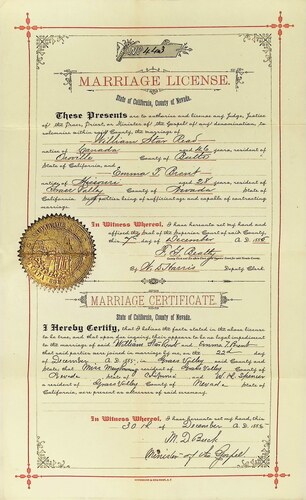 443
MARRIAGE LICENSE.
State of California, County of Nevada.
These Presents are to authorize and license any Judge, Justice
of the Peace, Priest, or Minister of the Gospel of any denomination, to
solemnize within said County, the marriage of
William Star Read
native of Canada aged 46 years, resident of
Oroville County of Butte
State of California, and Emma T Brent
native of Missouri aged 28 years, resident of
Grass Valley County of Nevada State of
California, said parties being of sufficient age and capable of contracting
marriage.
In Witness Whereof, I have hereunto set my hand and
affixed the Seal of the Superior Court of said County,
this day of December A. D. 188
Beatty
By Harris Deputy Clerk
MARRIAGE CERTIFICATE.
State of California, County of Nevada.
I Hereby Certify, that I believe the facts stated in the above license
to be true, and that upon due inquiry, there appears to be no legal impediment
to the marriage of said William Star Read and Emma T Brent
that said parties were joined in marriage by me on the 22nd day
of December A. D. 188 in Grass Valley County and
State; that a resident of Grass Valley County of
Nevada State of California and Spencer
a resident of Grass Valley County of Nevada State of
California, were present as witnesses of said ceremony.
In Witness Whereof, I have hereunto set my hand, this
30th of December A. D. 188
M. D. Buck
Minister of the Gospel